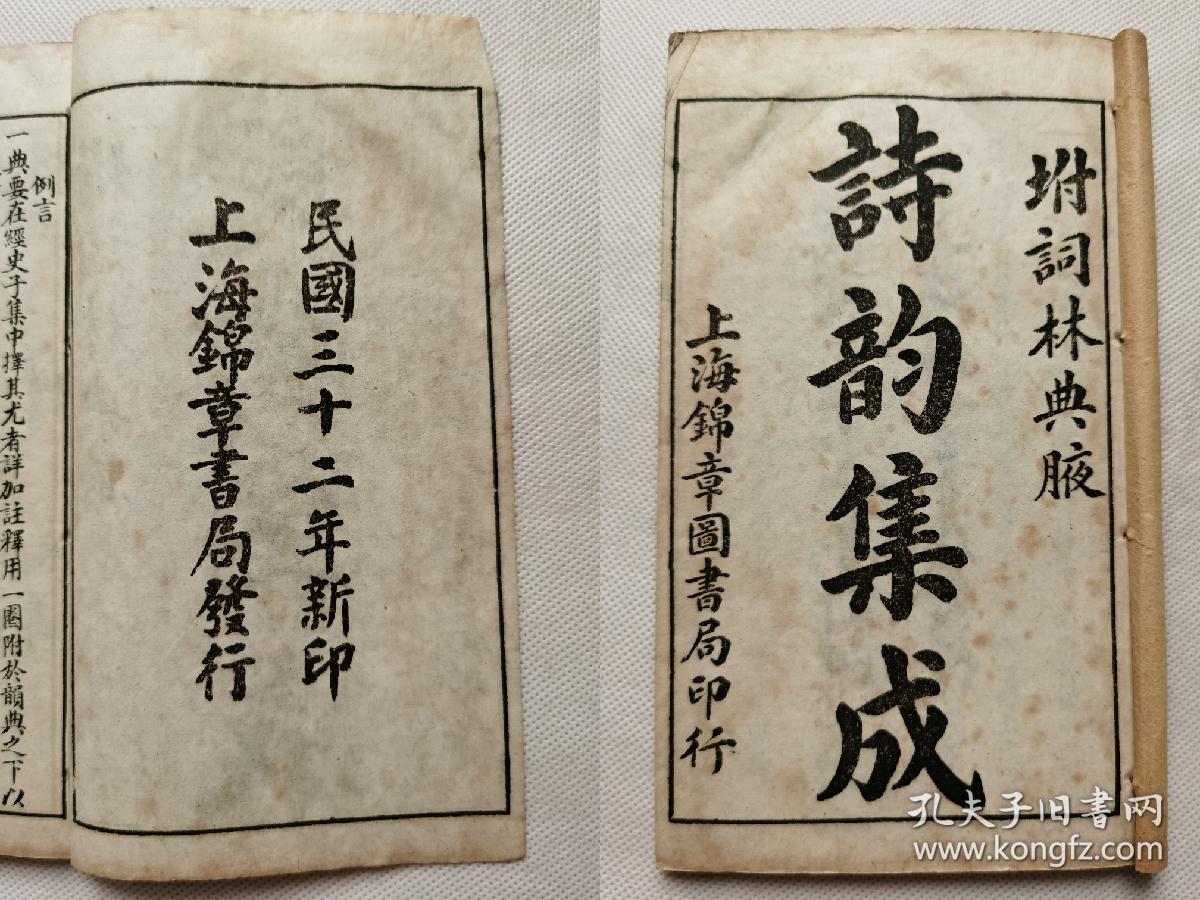 坿詞林典腋
詩韵集成
上海錦章圖書局印行
民國三十二年新印
上海錦章書局發行
例言
一典要在經史子集中擇其尤者詳加註釋用一圈附於韻典之下以
孔夫子旧书网
www.kongfz.com